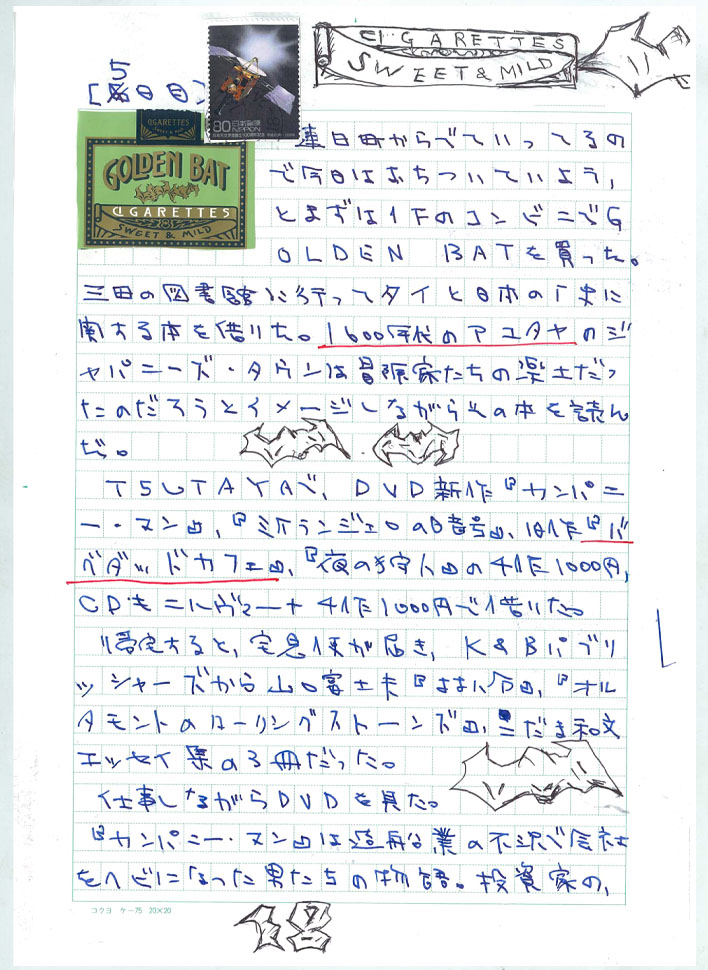 CIGARETTES
SWEET & MILD
[5日目]
80 日本郵便
NIPPON
CIGARETTES
GOLDEN BAT
CIGARETTES
SWEET & MILD
連日町からでていってるの
で今日はおちついていよう,
とまずは1Fのコンビニで G
OLDEN BATを買った。
三田の図書館に行ってタイと日本の歴史に
関する本を借りた。1600年代のアユタヤのジ
ャパニーズ・タウンは冒険家たちの楽土だっ
たのだろうとイメージしながらその本を読ん
だ。
TSUTAYAで, DVD新作『カンパニ
ー・メン』,『ミケランジェロの暗号』, 旧作『バ
グダッドカフェ』,『夜の狩人』の4作1000円,
CDも 4作1000円で借りた。
帰宅すると, 宅急便が届き, K&Bパブリ
ッシャーズから山口冨士夫『 』,『オル
タモントのローリングストーンズ』, こだま和文
エッセイ集の3冊だった。
仕事しながらDVDを見た。
『カンパニー・メン』は造船業の不況で会社
をクビになった男たちの物語。投資家の,
コクヨ ケー75 20×20
18